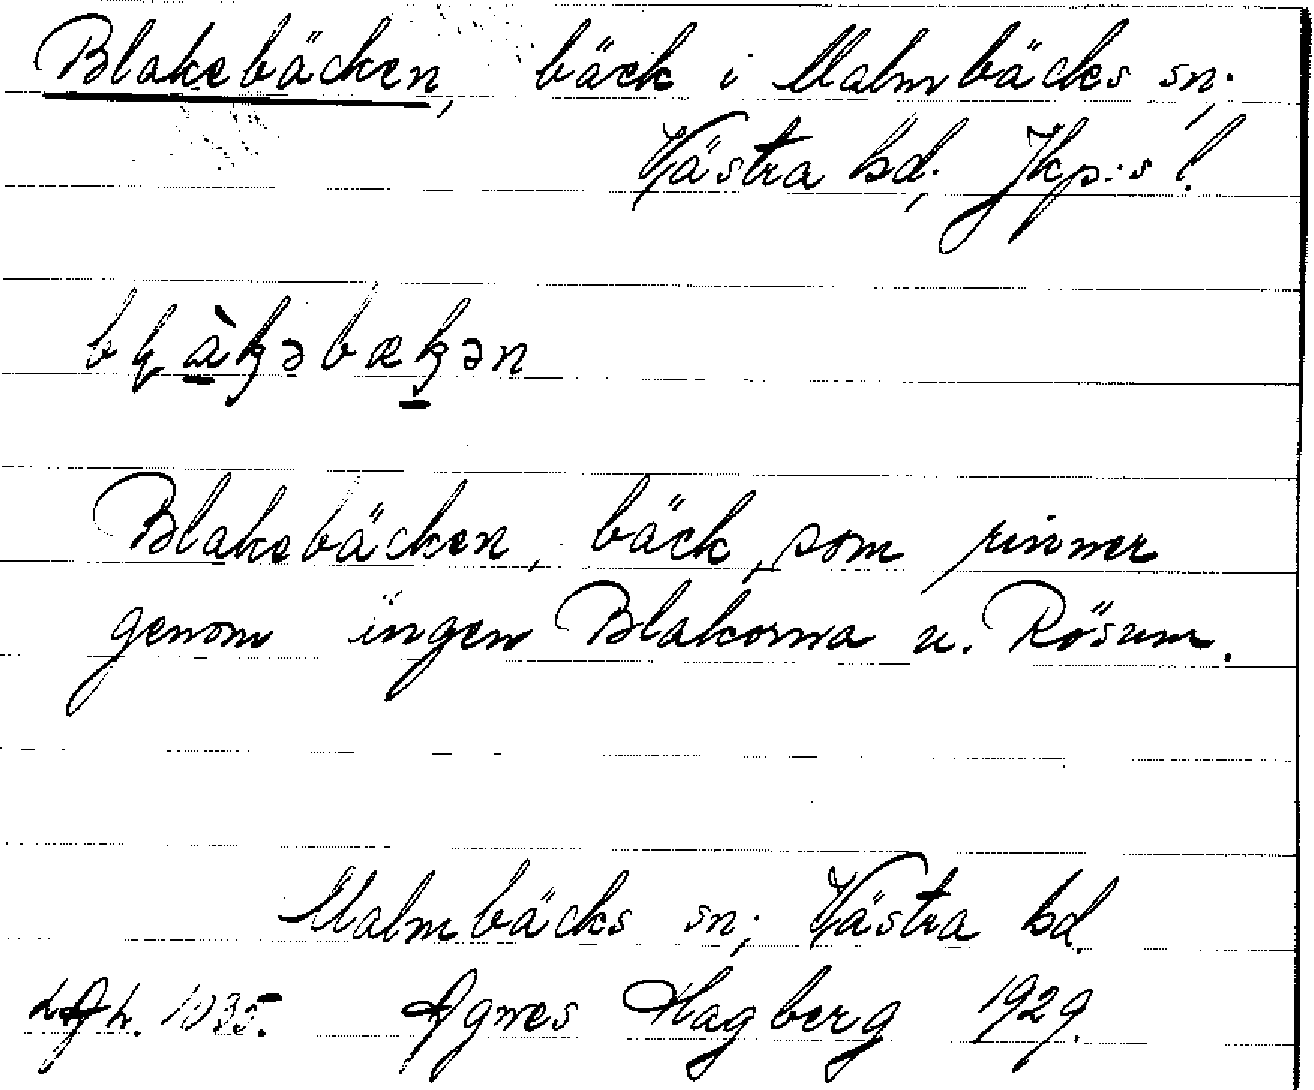 Blakebäcken, bäck i Malmbäcks sn;
Västra hd; Jkp:s l.
Blakebäcken, bäck, som rinner
genom ängen Blakorna u. Rösum.
Malmbäcks sn; Västra hd.
1035. Agnes Hagberg 1929.